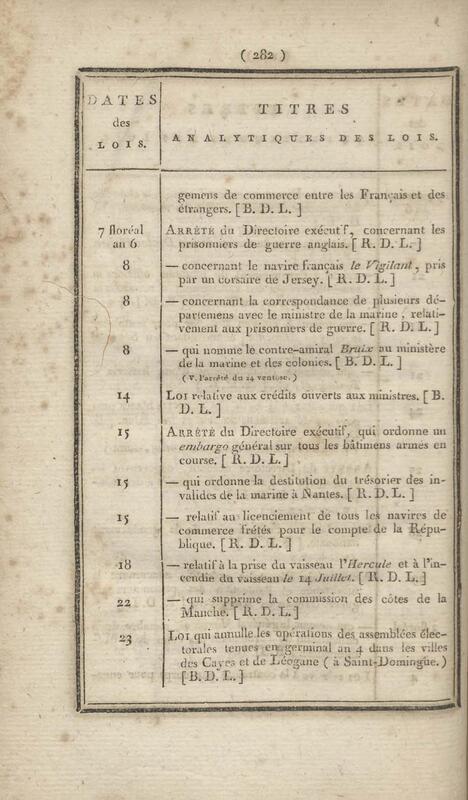 ( 282 )
DATES
des
LOIS.
TITRES
ANALYTIQUES DES LOIS.
gemens de commerce entre les Français et des
étrangers. [ B. D. L. ]
7 floréal
an 6
ARRÊTÉ du Directoire exécutif, concernant les
prisonniers de guerre anglais. [ R. D. L. ]
8
— concernant le navire français le Vigilant, pris
par un corsaire de Jersey. [ R. D. L. ]
8
— concernant la correspondance de plusieurs dé-
partemens avec le ministre de la marine, relati-
vement aux prisonniers de guerre. [ R. D. L. ]
8
— qui nomme le contre-amiral Bruix au ministère
de la marine et des colonies. [ B. D. L. ]
( V. l'arrêté du 14 ventose. )
14
LOI relative aux crédits ouverts aux ministres. [ B.
D. L. ]
15
ARRÊTÉ du Directoire exécutif, qui ordonne un
embargo général sur tous les bâtimens armés en
course. [ R. D. L. ]
15
— qui ordonne la destitution du trésorier des in-
valides de la marine à Nantes. [ R. D. L. ]
15
— relatif au licenciement de tous les navires de
commerce frétés pour le compte de la Répu-
blique. [ R. D. L. ]
18
— relatif à la prise du vaisseau l'Hercule et à l'in-
cendie du vaisseau le 14 Juillet. [ R. D. L. ]
22
— qui supprime la commission des côtes de la
Manche. [ R. D. L. ]
23
LOI qui annulle les opérations des assemblées élec-
torales tenues en germinal an 4 dans les villes
des Cayes et de Léogane ( à Saint-Domingue. )
[ B. D. L. ]